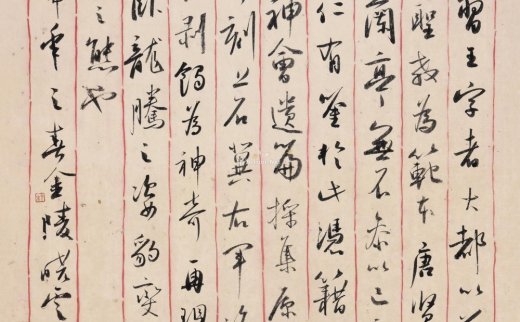 習王字者大都以
聖教為範本唐賢
蘭亭無不參以己
仁有鑒於此憑籍
神會遺篇採集原
刻上石冀右軍
剥蝕為神奇再現
臥龍騰之姿豹變
之態也
年之春金陵曉雲